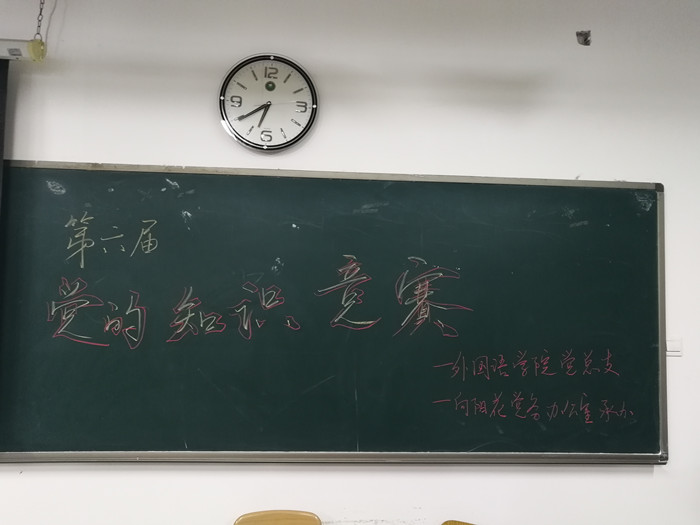 12
3
6
9
第六届
党的知识竞赛
一外国语学院党总支
一向阳花党务办公室承办